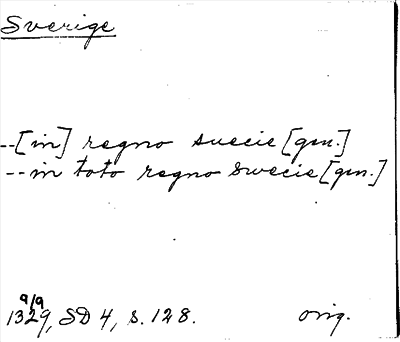 Sverige
--[in] regno suecie [gm.]
--in toto regno Swecie [gm.]
9/9
1329, SD 4, s. 128. orig.